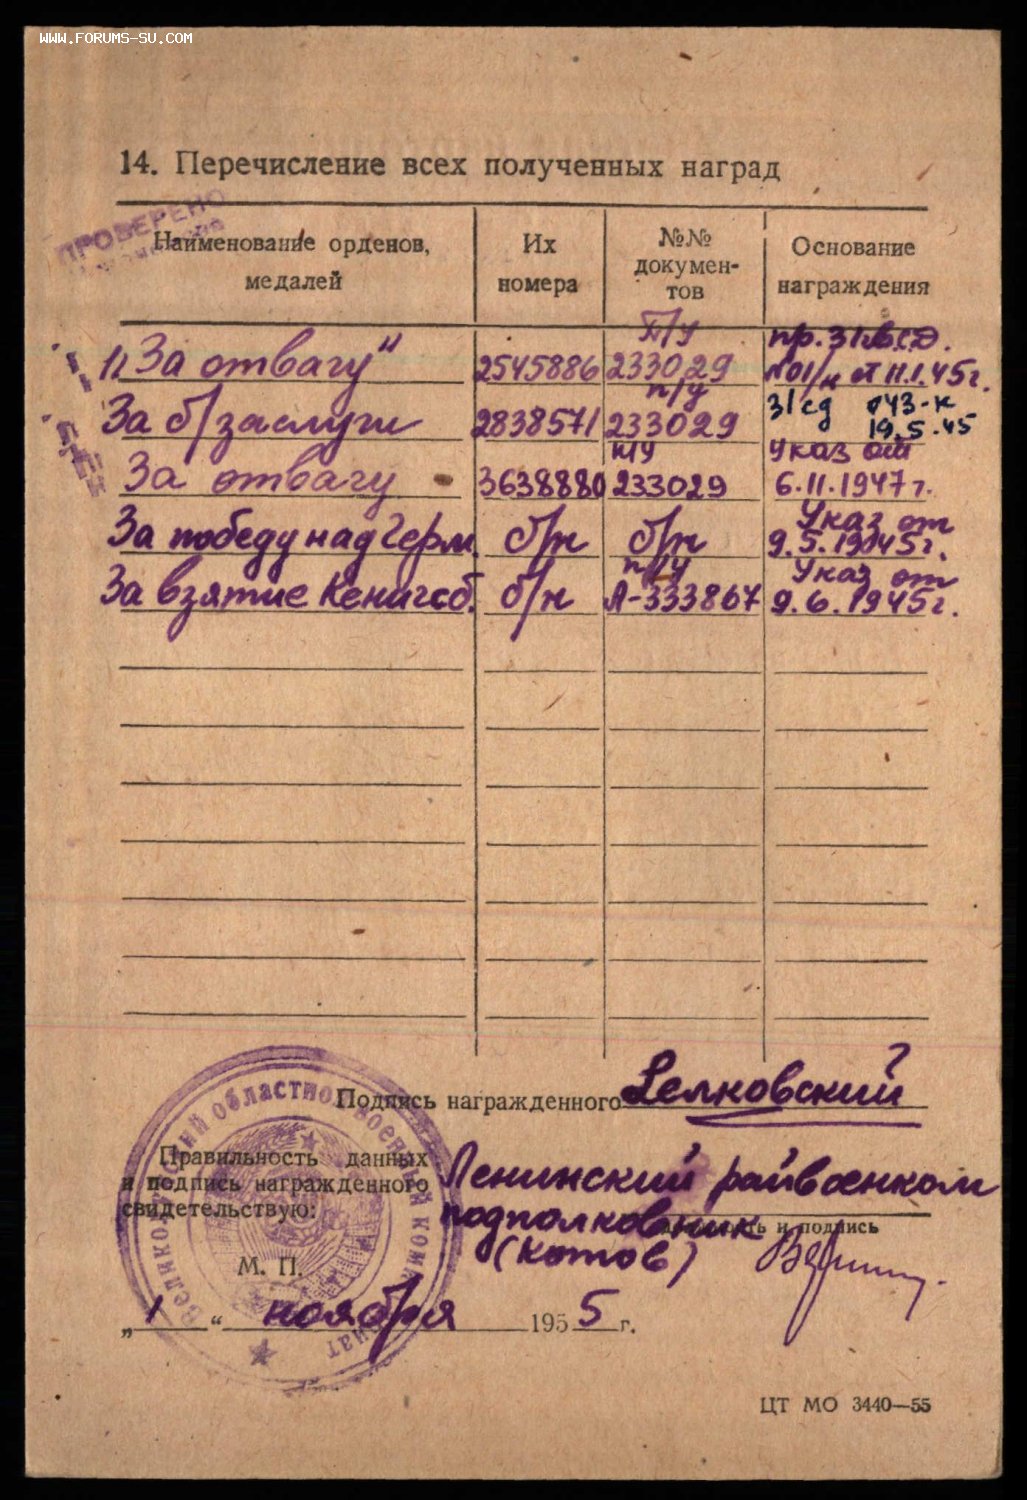 WWW.FORUMS-SU.COM
14. Перечисление всех полученных наград
ПРОВЕРЕНО
Наименование орденов, медалей
Их номера
№№ докумен-
тов
Основание награждения
1) "За отвагу" 2545886 п/у 233029 пр. 31 г.в.С.Д. №01/н от 11.1.45г.
За б/заслуги 2838571 п/у 233029 31 сд 043-н 19.5.45
За отвагу 3638880 п/у 233029 Указ от 6.11.1947г.
За победу над Герм. б/н б/н Указ от 9.5.1945г.
За взятие Кенигсб. б/н п/у А-333867 Указ от 9.6.1945г.
Подпись награжденного
Правильность данных
и подпись награжденного
свидетельствую:
Ленинский райвоенком
подполковник
(Котов)
должность и подпись
М. П.
„1“ ноября 1955 г.
Великолукский областной военный комиссариат
ЦТ МО 3440—55